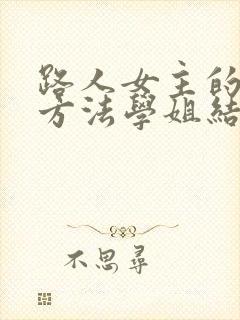 路人女主的
方法學姐結
不思尋